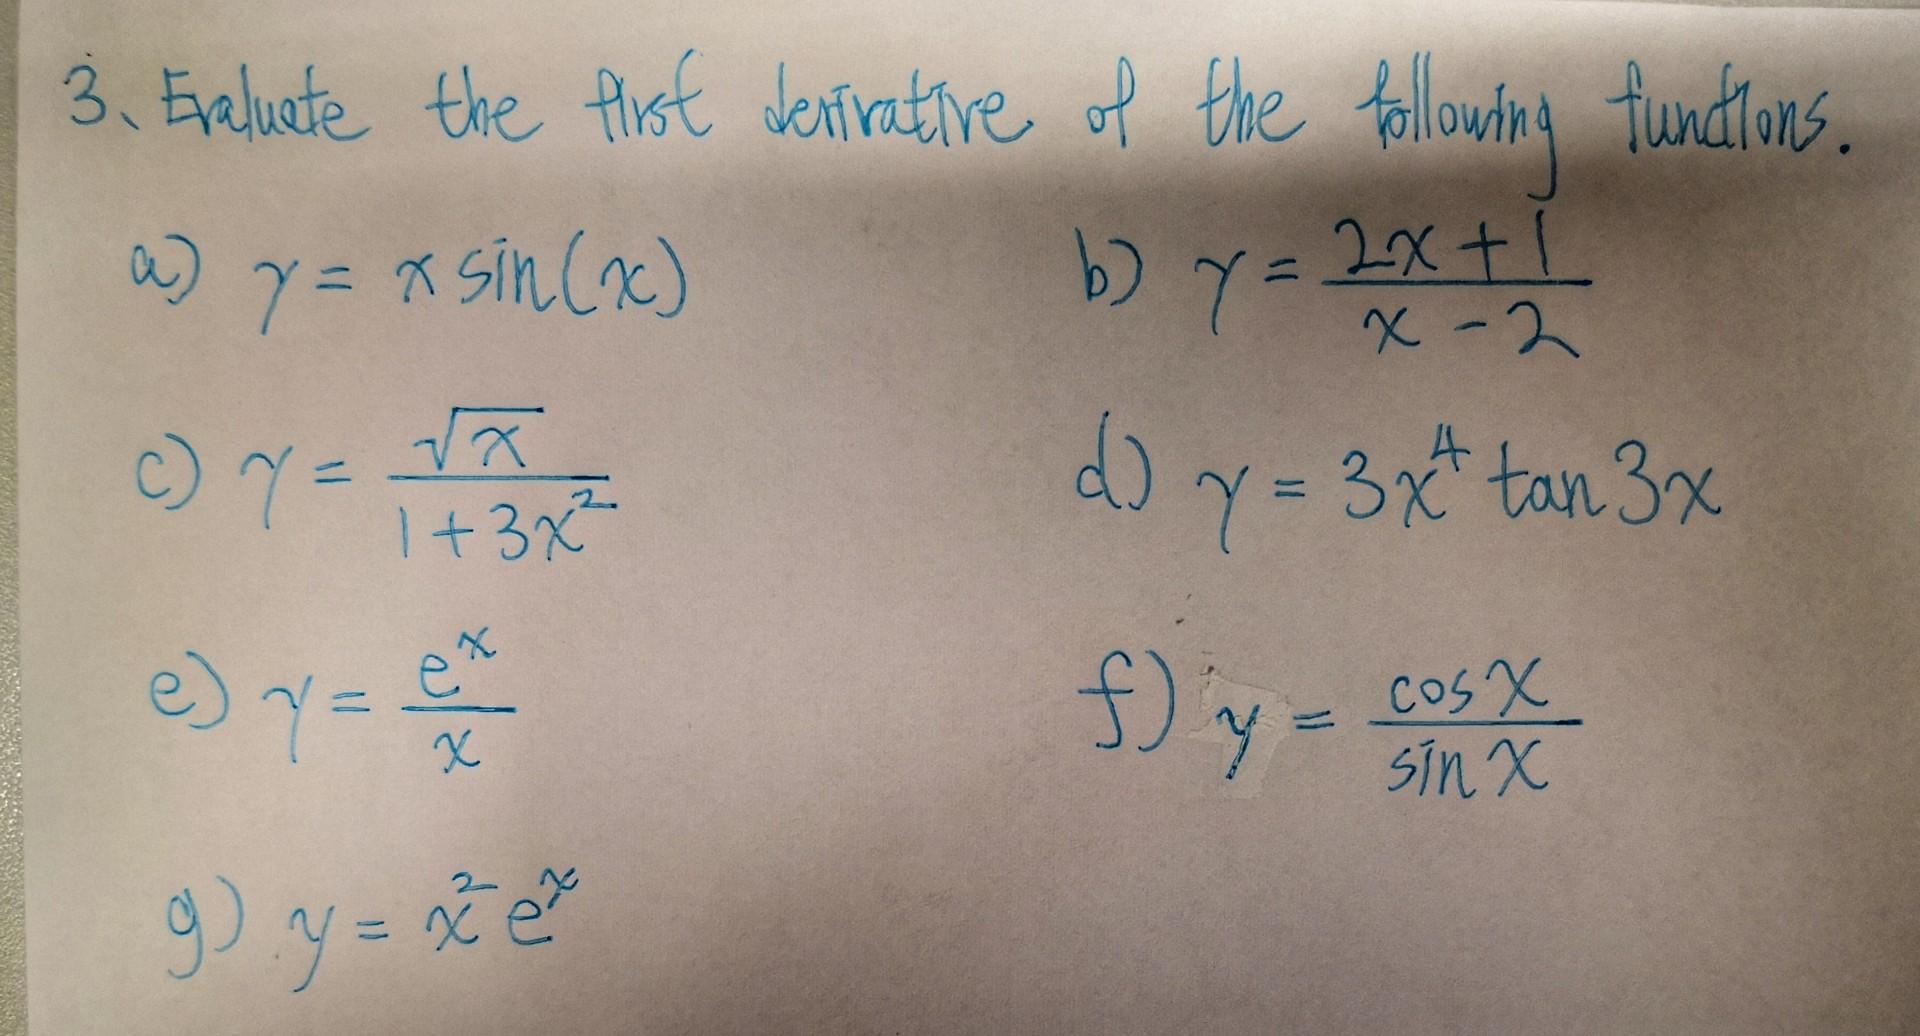 3. Evaluate the first derivative of the following functions.
a) y = x sin(x)
b) y = \frac{2x+1}{x-2}
c) y = \frac{\sqrt{x}}{1+3x^2}
d) y = 3x^4 tan 3x
e) y = \frac{e^x}{x}
f) y = \frac{cos x}{sin x}
g) y = x^2 e^x